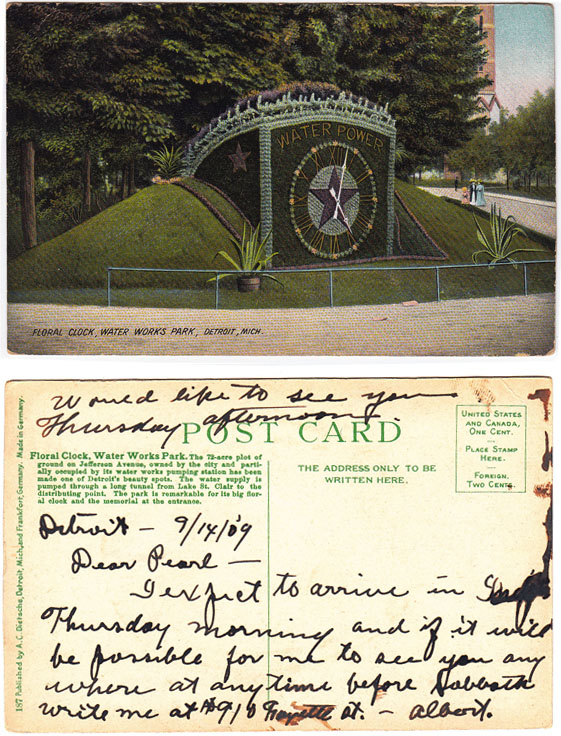 WATER POWER
XII
FLORAL CLOCK, WATER WORKS PARK, DETROIT, MICH.
Would like to see you
Thursday afternoon.
POST CARD
Floral Clock, Water Works Park. The 72-acre plot of
ground on Jefferson Avenue, owned by the city and parti-
ally occupied by its water works pumping station has been
made one of Detroit's beauty spots. The water supply is
pumped through a long tunnel from Lake St. Clair to the
distributing point. The park is remarkable for its big flor-
al clock and the memorial at the entrance.
THE ADDRESS ONLY TO BE
WRITTEN HERE.
UNITED STATES
AND CANADA,
ONE CENT.
PLACE STAMP
HERE.
FOREIGN,
TWO CENTS.
187 Published by A. C. Dietsche, Detroit, Mich., and Frankfort, Germany. Made in Germany.
Detroit — 9/14/09
Dear Pearl —
I expect to arrive in
Thursday morning and if it will
be possible for me to see you any
where at any time before Sabbath
write me at #910 Fayette St. — Albert.